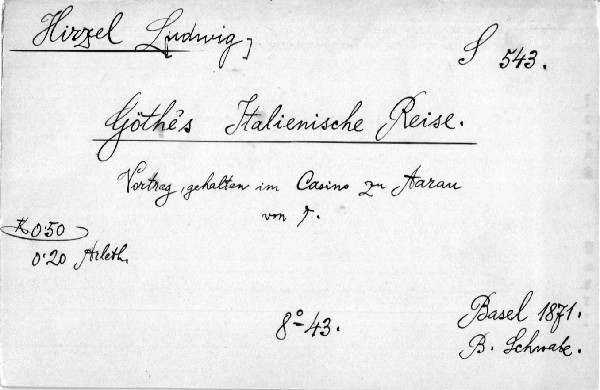 Hirzel L[udwig]
S 543.
Göthe's Italienische Reise.
Vortrag, gehalten im Casino zu Aarau
von
K 0·50
0·20 Arleth.
8°-43.
Basel 1871.
B. Schwabe.